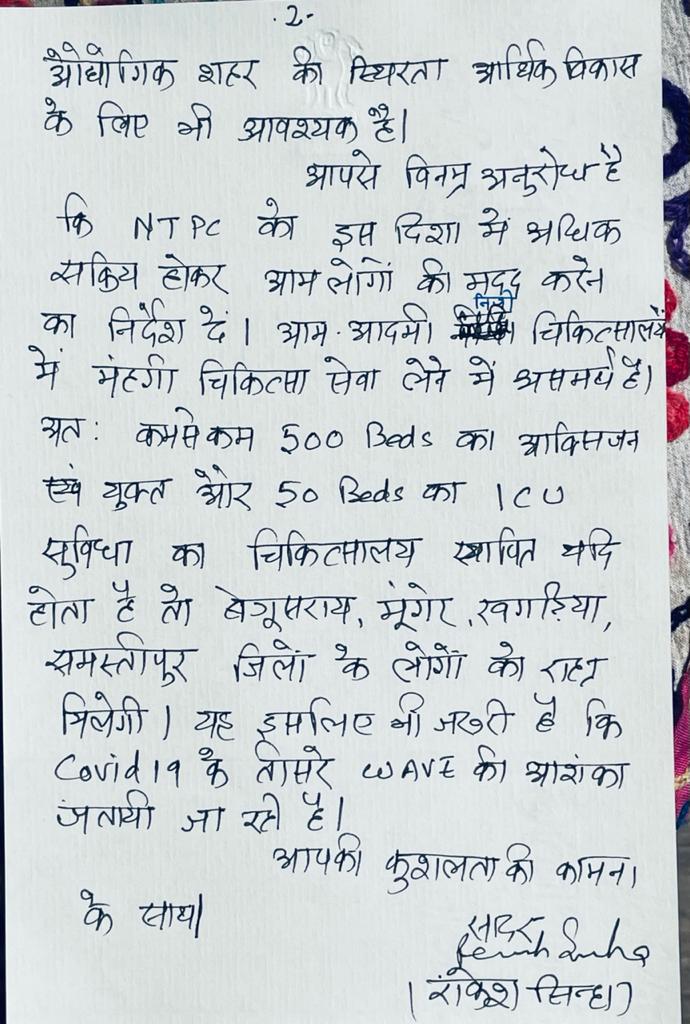 -2-
औद्योगिक शहर की स्थिरता आर्थिक विकास
के लिए भी आवश्यक है।
आपसे विनम्र अनुरोध है
कि NTPC को इस दिशा में अधिक
सक्रिय होकर आम लोगों की मदद करने
का निर्देश दें। आम आदमी निजी चिकित्सालयों
में मंहगी चिकित्सा सेवा लेने में असमर्थ है।
अत: कमसेकम 500 Beds का आक्सिजन
युक्त और 50 Beds का ICU
सुविधा का चिकित्सालय स्थापित यदि
होता है तो बेगूसराय, मूंगेर, खगड़िया,
समस्तीपुर जिलों के लोगों को राहत
मिलेगी। यह इसलिए भी जरूरी है कि
Covid19 के तीसरे WAVE की आशंका
जतायी जा रही है।
आपकी कुशलता की कामना
के साथ।
सादर
(राकेश सिन्हा)